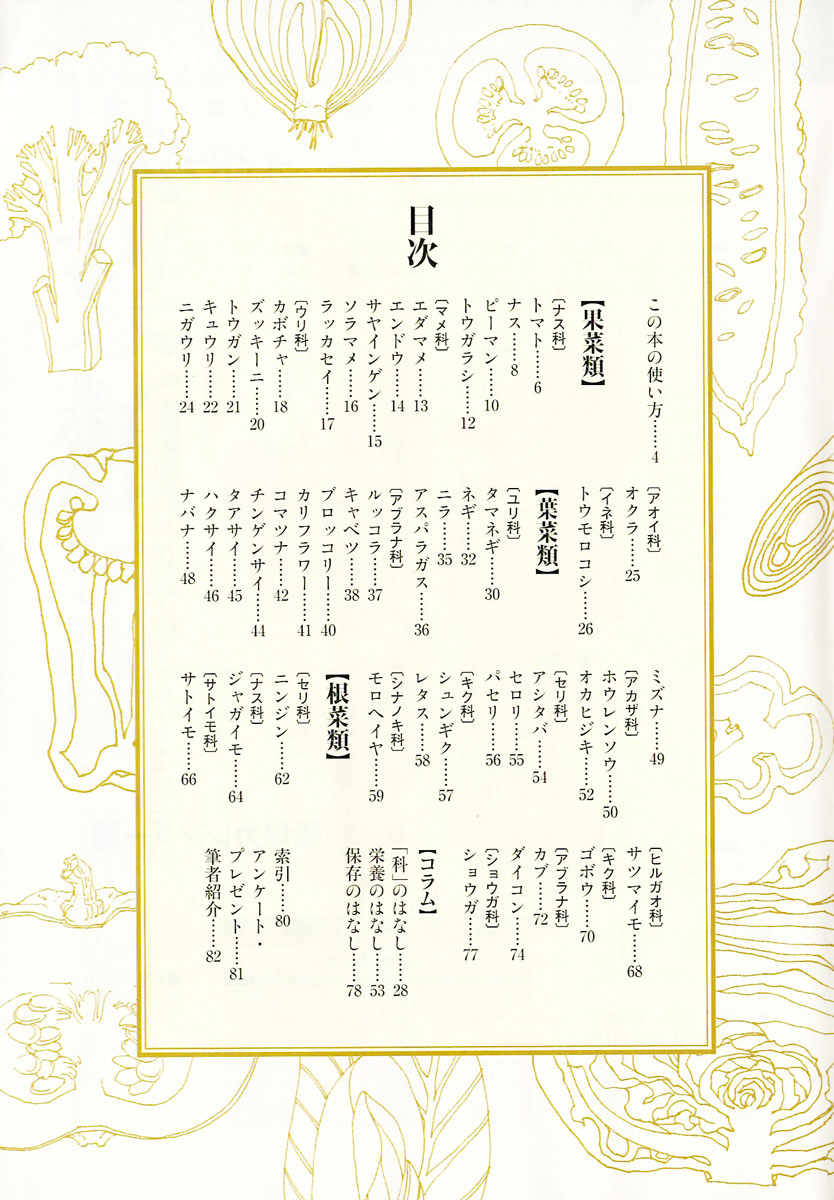 目次
この本の使い方……4
【果菜類】
〔ナス科〕
トマト……6
ナス……8
ピーマン……10
トウガラシ……12
〔マメ科〕
エダマメ……13
エンドウ……14
サヤインゲン……15
ソラマメ……16
ラッカセイ……17
〔ウリ科〕
カボチャ……18
ズッキーニ……20
トウガン……21
キュウリ……22
ニガウリ……24
〔アオイ科〕
オクラ……25
〔イネ科〕
トウモロコシ……26
【葉菜類】
〔ユリ科〕
タマネギ……30
ネギ……32
ニラ……35
アスパラガス……36
〔アブラナ科〕
ルッコラ……37
キャベツ……38
ブロッコリー……40
カリフラワー……41
コマツナ……42
チンゲンサイ……44
タアサイ……45
ハクサイ……46
ナバナ……48
ミズナ……49
〔アカザ科〕
ホウレンソウ……50
オカヒジキ……52
〔セリ科〕
アシタバ……54
セロリ……55
パセリ……56
〔キク科〕
シュンギク……57
レタス……58
〔シナノキ科〕
モロヘイヤ……59
【根菜類】
〔セリ科〕
ニンジン……62
〔ナス科〕
ジャガイモ……64
〔サトイモ科〕
サトイモ……66
〔ヒルガオ科〕
サツマイモ……68
〔キク科〕
ゴボウ……70
〔アブラナ科〕
カブ……72
ダイコン……74
〔ショウガ科〕
ショウガ……77
【コラム】
「科」のはなし……28
栄養のはなし……53
保存のはなし……78
索引……80
アンケート・
プレゼント……81
筆者紹介……82